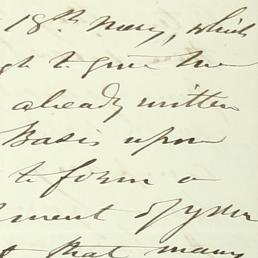 18th Novr, which
gh to give the
already written
Basis upon
to form a
ment of your
t that many